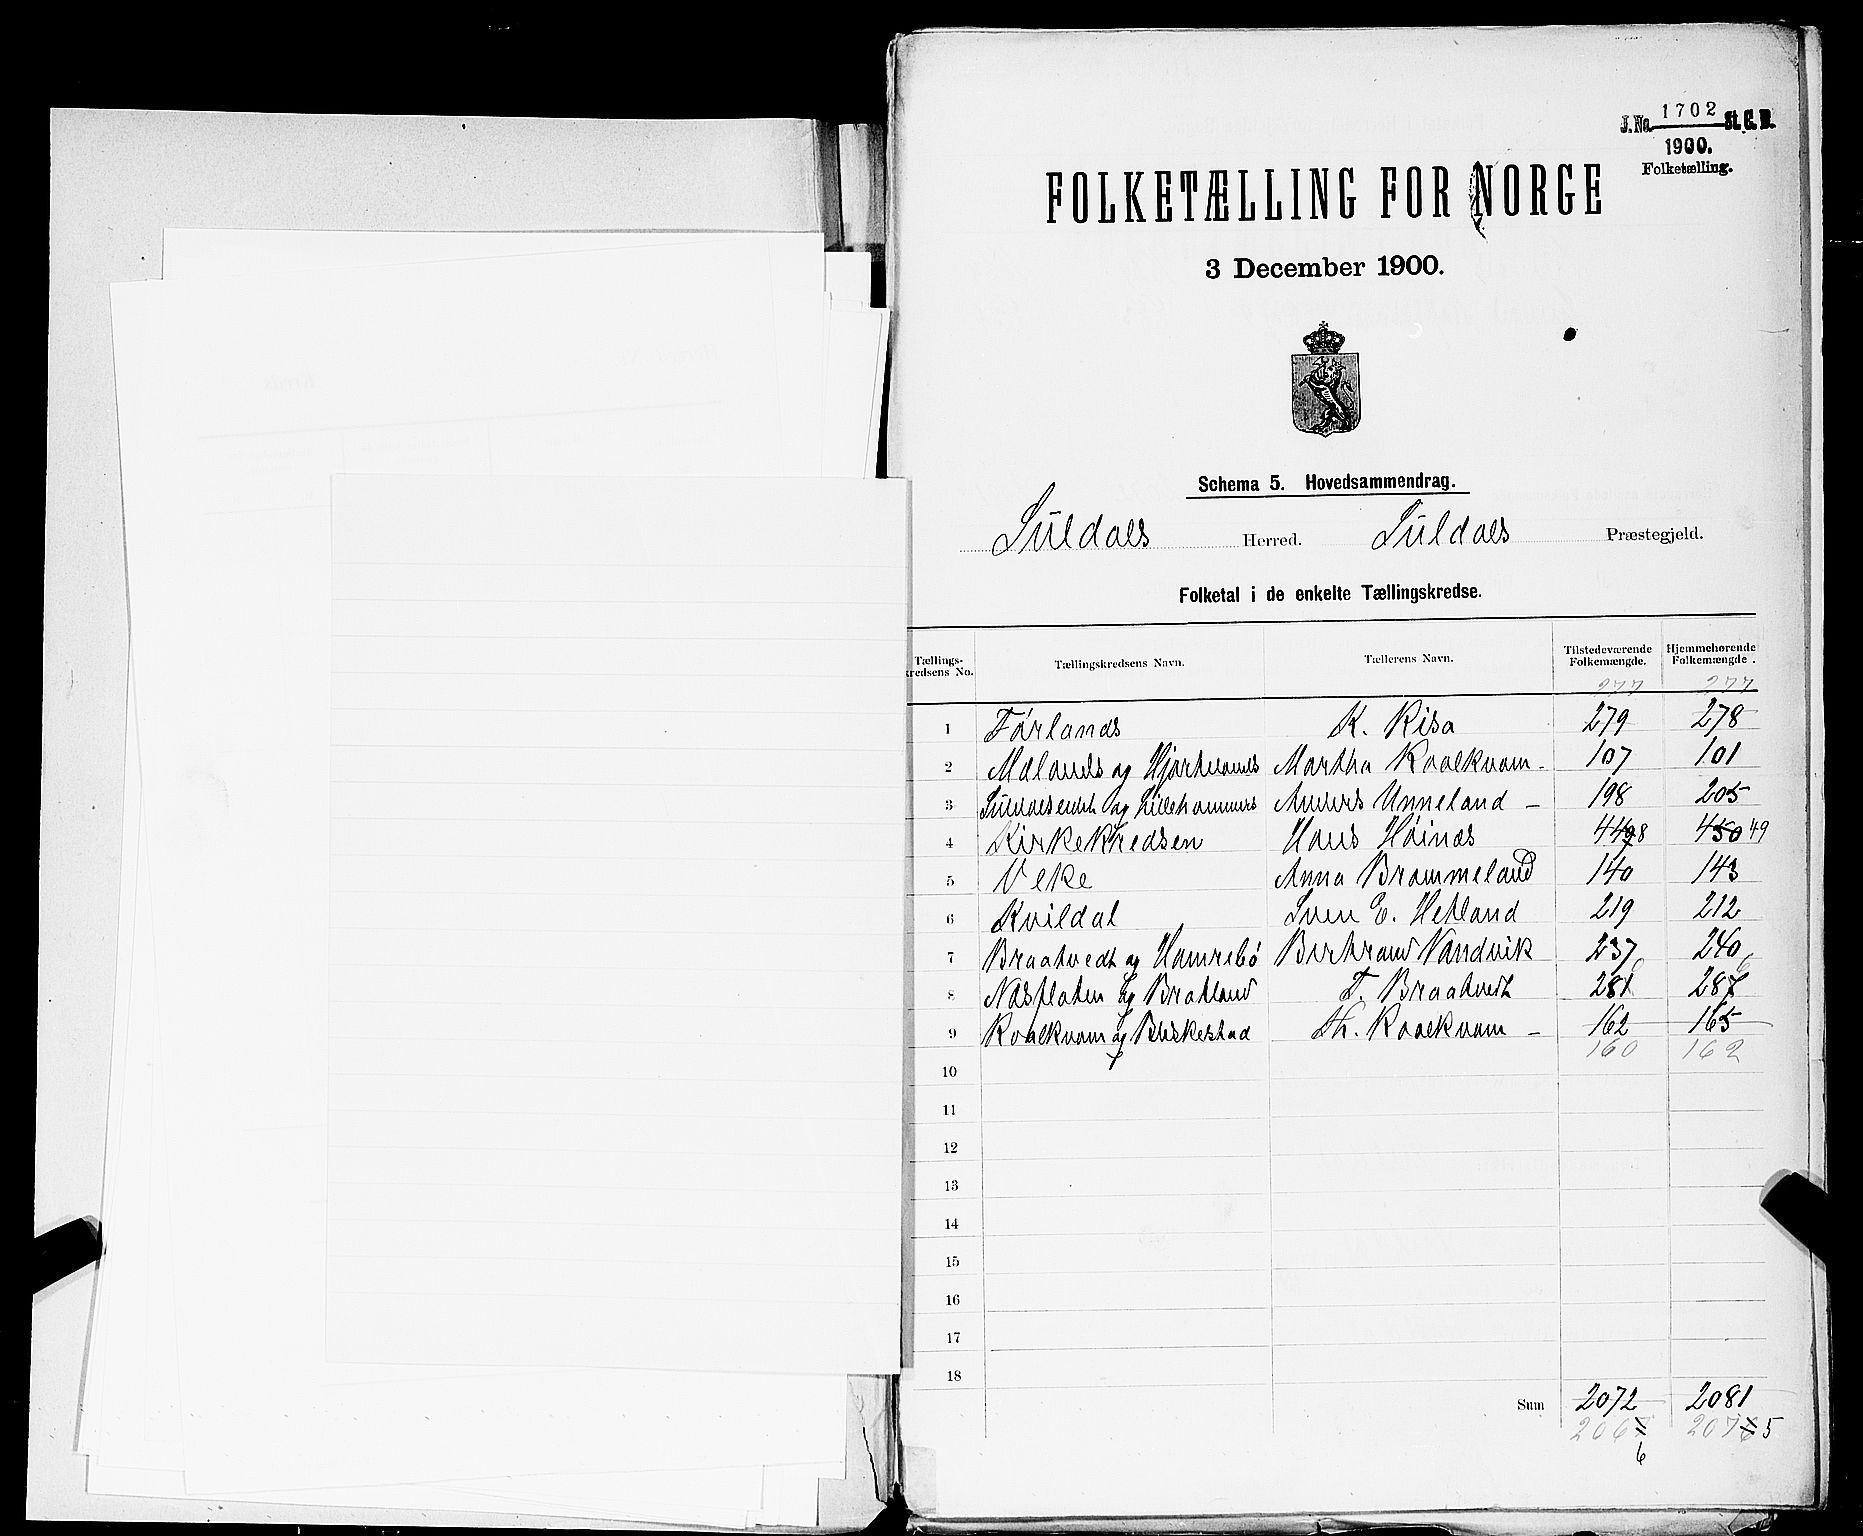 J. No. 1702 St. C. B.
1900.
Folketælling.
FOLKETÆLLING FOR NORGE
3 December 1900.
Schema 5. Hovedsammendrag.
Suldals Herred. Suldals Præstegjeld.
Folketal i de enkelte Tællingskredse.
Tællings-kredsens No. Tællingskredsens Navn. Tællerens Navn. Tilstedeværende Folkemængde. Hjemmehørende Folkemængde.
277 277
1 Førlands K. Risa 279 278
2 Mælands og Hjortelands Martha Roalkvam 107 101
3 Suldalseidet og Lillehammers Anders Unneland 198 205
4 Kirkekredsen Hans Høinæs 4498 450 49
5 Veke Anna Brommeland 140 143
6 Kvildal Sven E. Hetland 219 212
7 Braatvedt og Hamrebø Bertrand Vandvik 237 240
8 Næsflaten og Bratland T. Braatvedt 281 287
9 Roalkvam og Bleskestad Th. Roalkvam 162 165
160 162
10
11
12
13
14
15
16
17
18
Sum 2072 2081
206 6 207 5